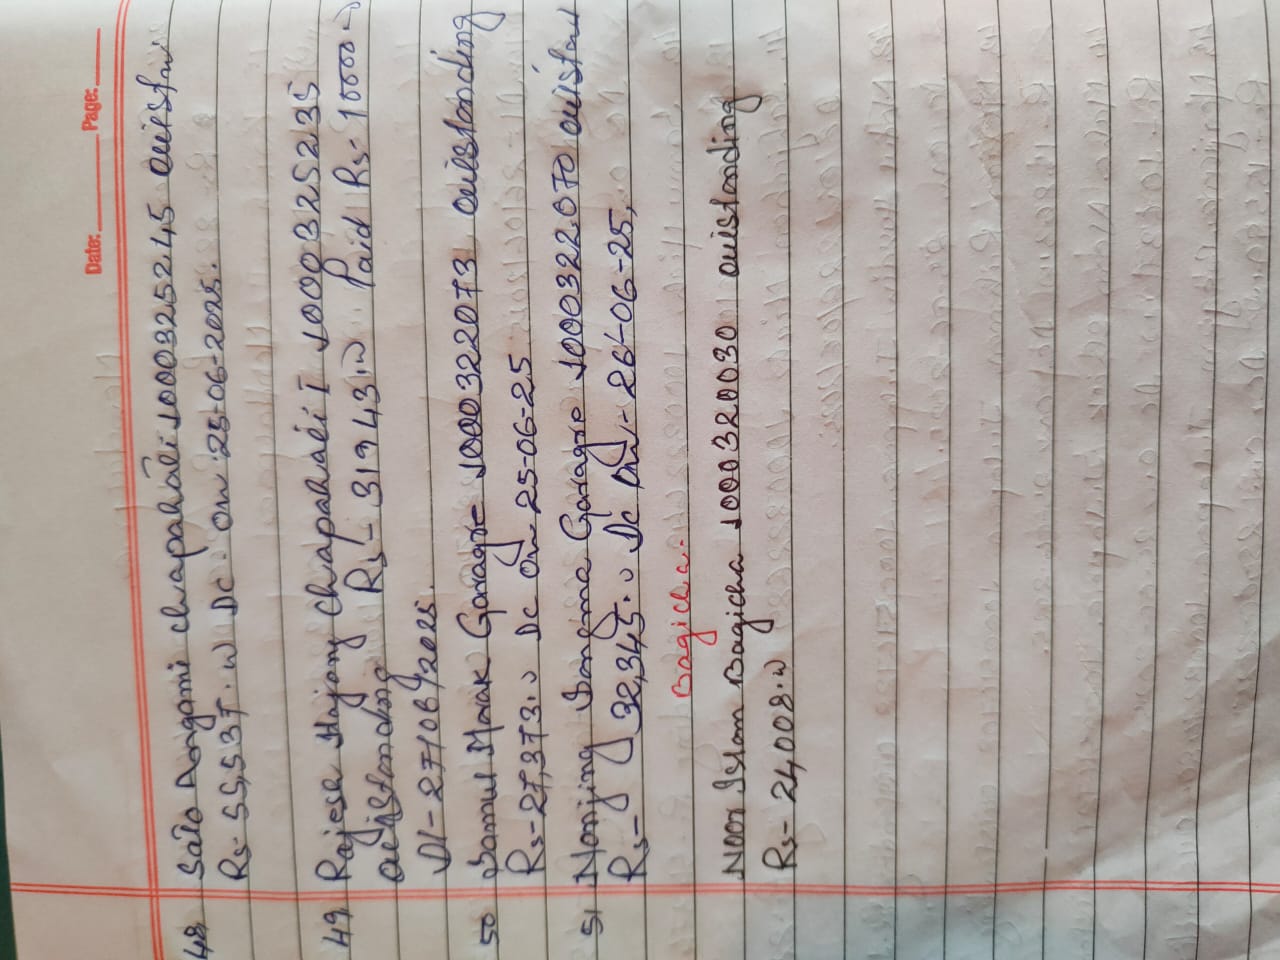 Date: Page:
48 Sato Angami Chapahali 1000325245 outstan
Rs- 55,537.00 DC. On 25-06-2025.
49 Rajese Hajong Chapahadi I 1000325235
outstanding Rs- 31943.00 Paid Rs- 10000.00
Dt- 27/06/2025.
50 Samul Marak Garage 1000322073 outstanding
Rs- 27,373.00 DC On 25-06-25
51 Nanjing Sangma Garage 1000322070 outstan
Rs- 32,345.00 DC On- 26-06-25,
Bagicha.
Noor Islam Bagicha 1000320030 outstanding
Rs- 24,008.00